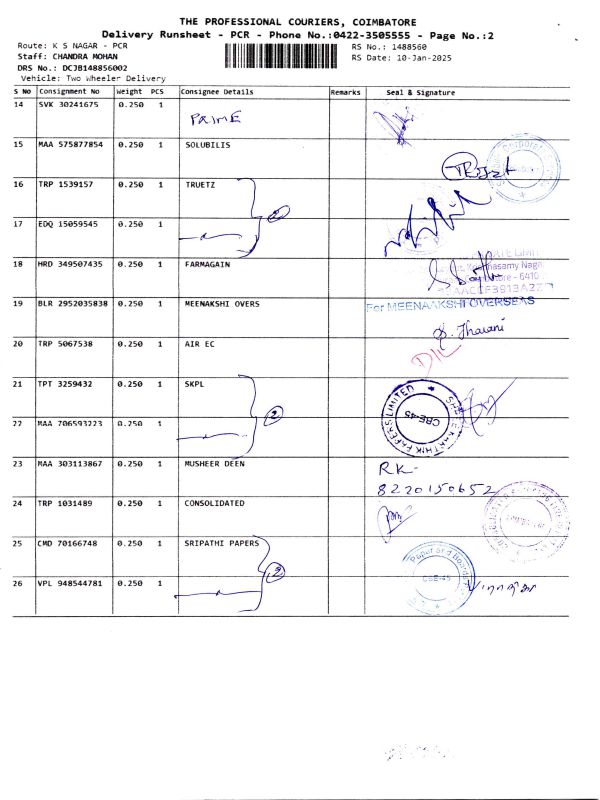 THE PROFESSIONAL COURIERS, COIMBATORE
Delivery Runsheet - PCR - Phone No.:0422-3505555 - Page No.:2
Route: K S NAGAR - PCR
Staff: CHANDRA MOHAN
DRS No.: DCJB148856002
Vehicle: Two Wheeler Delivery
RS No.: 1488560
RS Date: 10-Jan-2025
S No Consignment No Weight PCS Consignee Details Remarks Seal & Signature
14 SVK 30241675 0.250 1
PRIME
15 MAA 575877854 0.250 1 SOLUBILIS
16 TRP 1539157 0.250 1 TRUETZ
17 EDQ 15059545 0.250 1
18 HRD 349507435 0.250 1 FARMAGAIN
19 BLR 2952035838 0.250 1 MEENAKSHI OVERS
For MEENAAKSHI OVERSEAS
20 TRP 5067538 0.250 1 AIR EC
21 TPT 3259432 0.250 1 SKPL
2
SHREE KARTHIK PAPERS LIMITED
CBE-45
22 MAA 706593223 0.250 1
23 MAA 303113867 0.250 1 MUSHEER DEEN
RK-
8220150652
24 TRP 1031489 0.250 1 CONSOLIDATED
25 CMD 70166748 0.250 1 SRIPATHI PAPERS
2
Paper and Boards
CBE-45
26 VPL 948544781 0.250 1